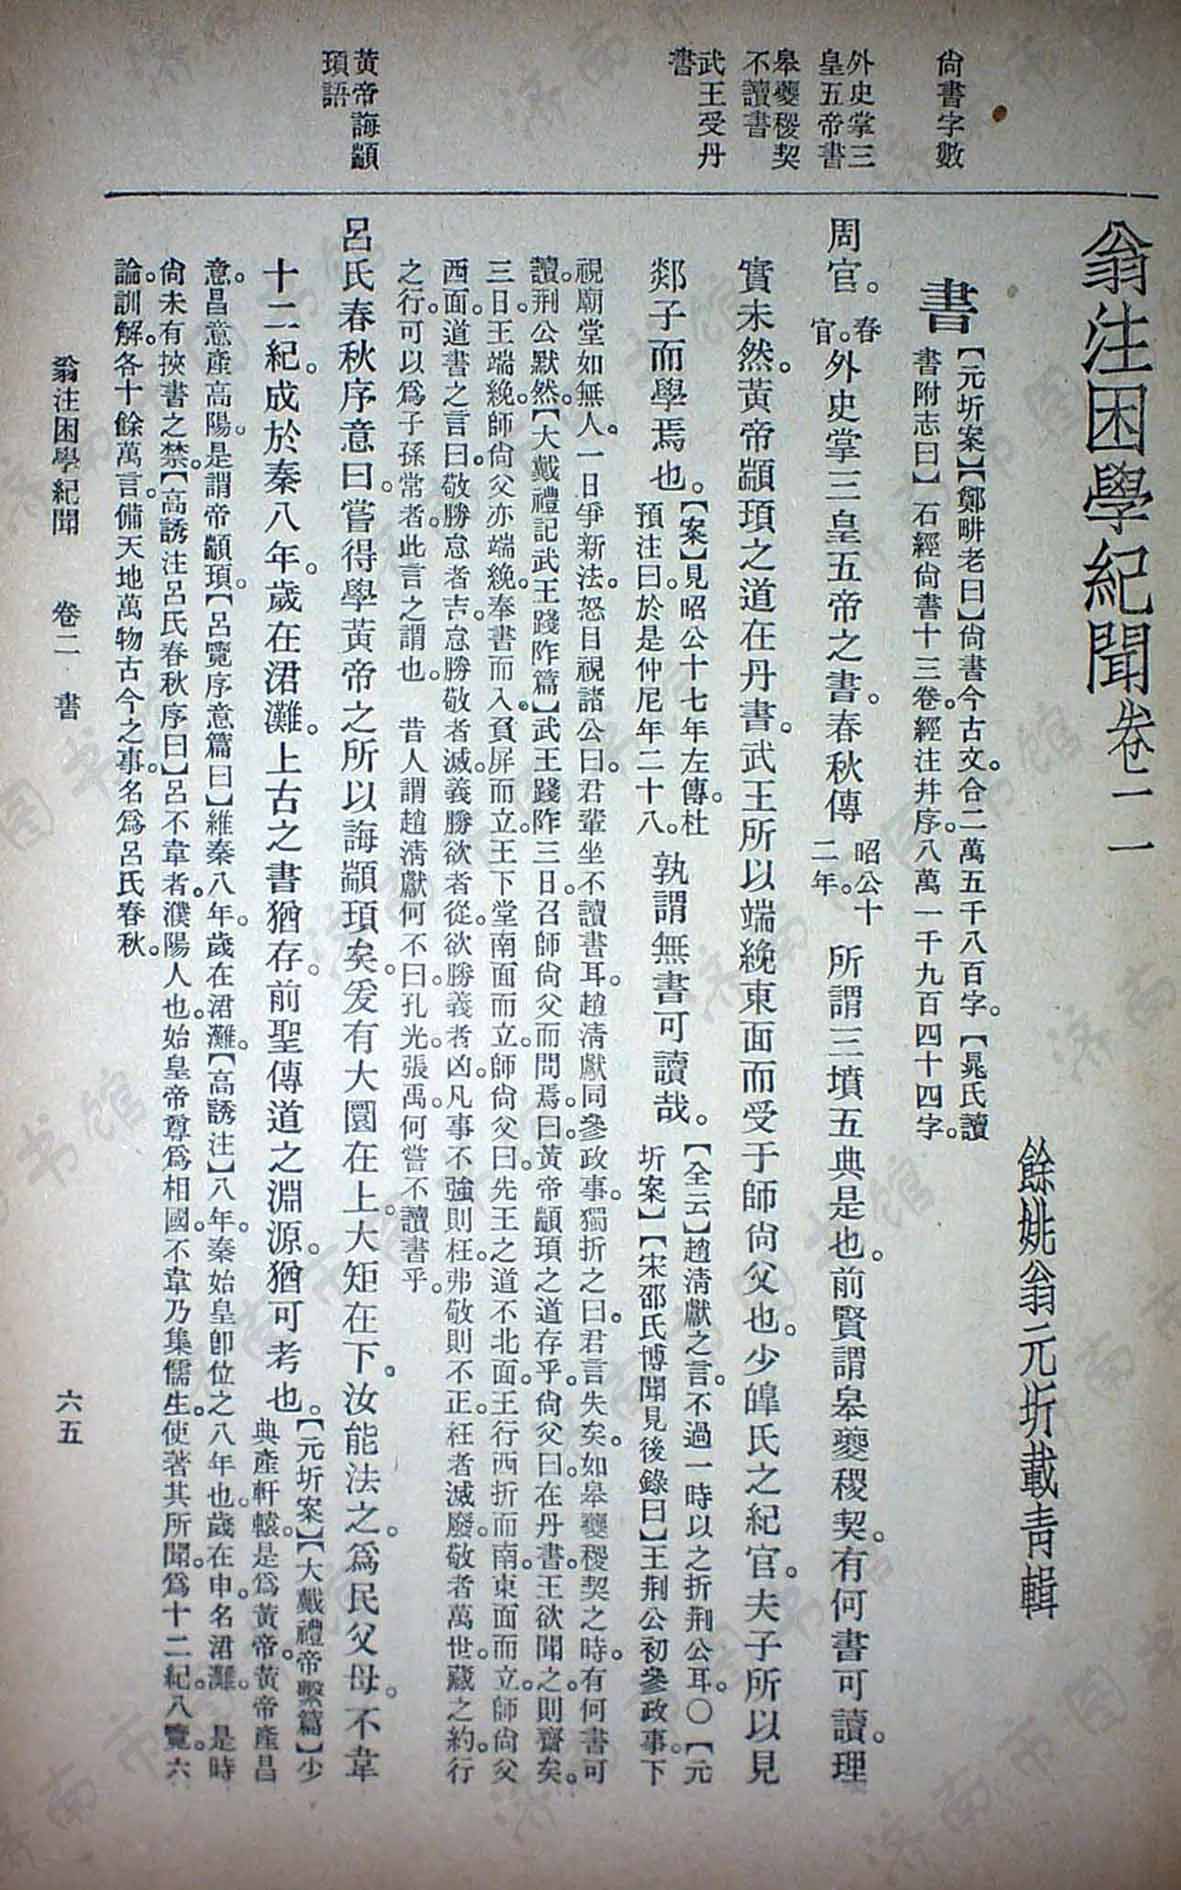 尙書字數
外史掌三
皇五帝書
皋夔稷契
不讀書
武王受丹
書
黃帝誨顓
頊語
翁注困學紀聞卷二
餘姚翁元圻載青輯
書
【元圻案】【鄭畊老曰】尙書今古文。合二萬五千八百字。【晁氏讀
書附志曰】石經尙書十三卷。經注幷序。八萬一千九百四十四字。
周官。春官。外史掌三皇五帝之書。春秋傳昭公十二年。所謂三墳五典是也。前賢謂皋夔稷契。有何書可讀。理
實未然。黃帝顓頊之道在丹書。武王所以端絻東面而受于師尙父也。少皥氏之紀官。夫子所以見
郯子而學焉也。【案】見昭公十七年左傳。杜預注曰。於是仲尼年二十八。孰謂無書可讀哉。【全云】趙淸獻之言。不過一時以之折荆公耳。〇【元
圻案】【宋邵氏博聞見後錄曰】王荆公初參政事。下
視廟堂如無人。一日爭新法。怒目視諸公曰。君輩坐不讀書耳。趙淸獻同參政事。獨折之曰。君言失矣。如皋夔稷契之時。有何書可
讀。荆公默然。【大戴禮記武王踐阼篇】武王踐阼三日。召師尙父而問焉。曰。黃帝顓頊之道存乎。尙父曰。在丹書。王欲聞之。則齋矣。
三日。王端絻。師尙父亦端絻。奉書而入。負屏而立。王下堂南面而立。師尙父曰。先王之道不北面。王行西折而南。東面而立。師尙父
西面。道書之言曰。敬勝怠者吉。怠勝敬者滅。義勝欲者從。欲勝義者凶。凡事不強則枉。弗敬則不正。枉者滅廢。敬者萬世。藏之約。行
之行。可以爲子孫常者。此言之謂也。　昔人謂趙淸獻何不曰。孔光。張禹。何嘗不讀書乎。
呂氏春秋序意曰。嘗得學黃帝之所以誨顓頊矣。爰有大圜在上。大矩在下。汝能法之。爲民父母。不韋
十二紀。成於秦八年。歲在涒灘。上古之書猶存。前聖傳道之淵源。猶可考也。【元圻案】【大戴禮帝繫篇】少
典產軒轅。是爲黃帝。黃帝產昌
意。昌意產高陽。是謂帝顓頊。【呂覽序意篇曰】維秦八年。歲在涒灘。【高誘注】八年。秦始皇卽位之八年也。歲在申。名涒灘。是時
尙未有挾書之禁。【高誘注呂氏春秋序曰】呂不韋者。濮陽人也。始皇帝尊爲相國。不韋乃集儒生。使著其所聞。爲十二紀。八覽。六
論。訓解。各十餘萬言。備天地萬物古今之事。名爲呂氏春秋。
翁注困學紀聞　卷二　書　六五